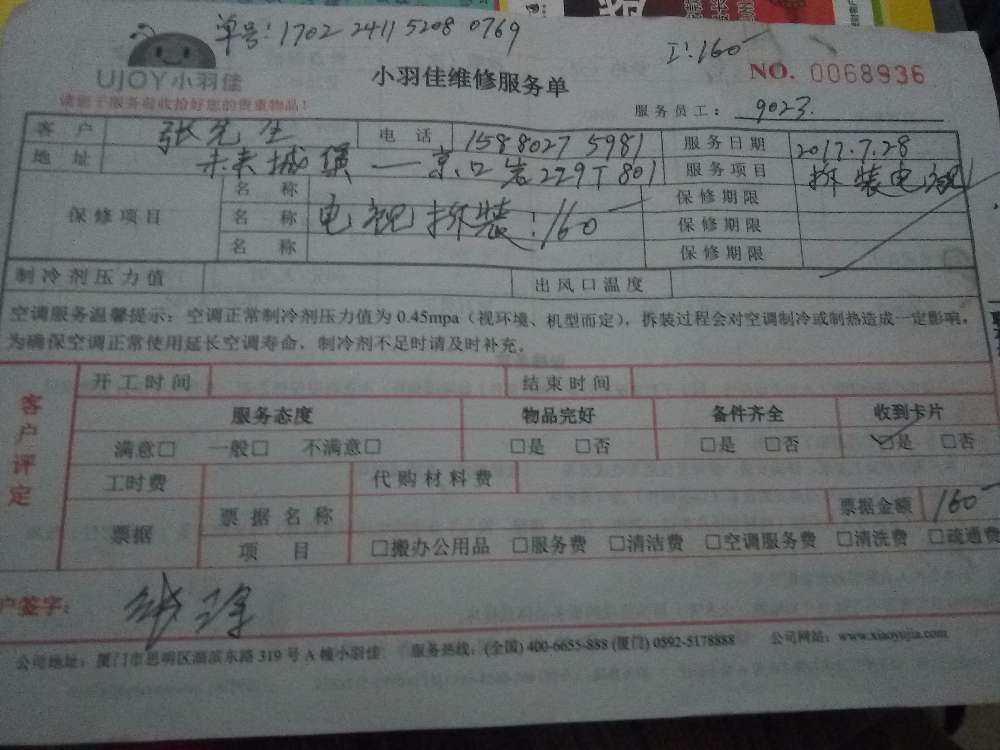 单号: 1702 2411 5208 0769
I: 160
UJOY小羽佳
小羽佳维修服务单
NO. 0068936
请您于服务前收拾好您的贵重物品！
服务员工: 9023.
客户 张先生 电话 15880275981 服务日期 2017.7.28
地址 未来城 服务项目 拆装电视
保修项目
名称 保修期限
名称 电视拆装:160 保修期限
名称 保修期限
制冷剂压力值 出风口温度
空调服务温馨提示：空调正常制冷剂压力值为 0.45mpa（视环境、机型而定），拆装过程会对空调制冷或制热造成一定影响，
为确保空调正常使用延长空调寿命，制冷剂不足时请及时补充。
客户评定
开工时间 结束时间
服务态度 物品完好 备件齐全 收到卡片
满意□ 一般□ 不满意□ □是 □否 □是 □否 ☑是 □否
工时费 代购材料费
票据 票据名称 票据金额 160
项目 □搬办公用品 □服务费 □清洁费 □空调服务费 □清洗费 □疏通费
户签字：
公司地址：厦门市思明区湖滨东路 319 号 A 幢小羽佳 服务热线：(全国) 400-6655-888 (厦门) 0592-5178888 公司网站：www.xiaoyujia.com